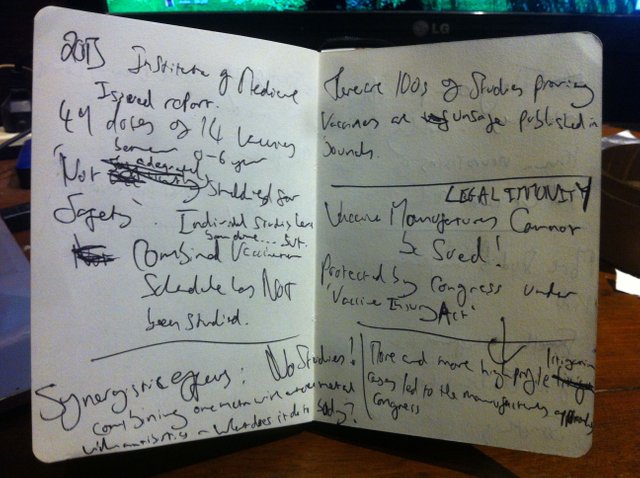 LG
2013 Institute of Medicine
Issued report.
44 doses of 14 vaccines
between 0-6 year
Not studied for
Safety. Individual studies have
been done... but.
Combined Vaccination
Schedule has Not
been studied.
Synergistic effects: No Studies!
combining one metal with another metal
what does it do to body?
There are 100s of studies proving
Vaccines are unsafe published in
Journals.
LEGAL IMMUNITY
Vaccine Manufacturers Cannot
be Sued!
Protected by Congress under
'Vaccine Injury Act'
More and more high profile litigation
cases led to the manufacturers
Congress